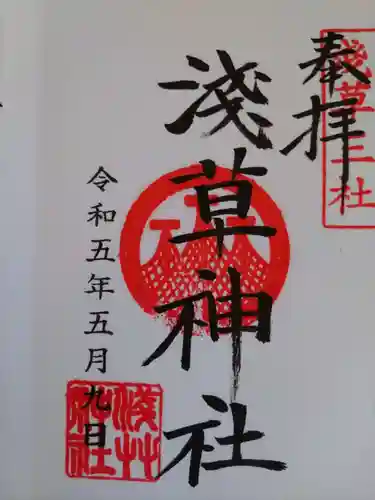 奉拝
淺草三社
淺草神社
令和五年五月九日
淺艸神社